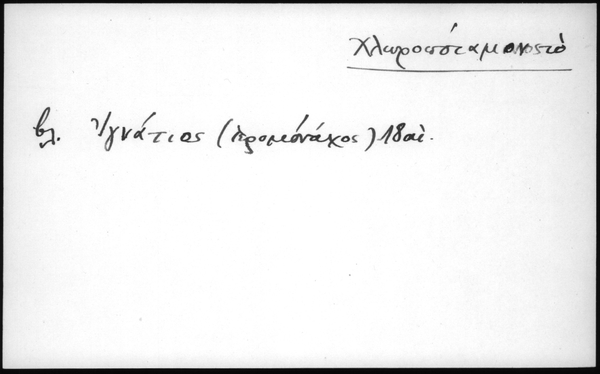 Χλωροπόταμον
βλ. Ἰγνάτιος (ἱερομόναχος) 18 αἰ.